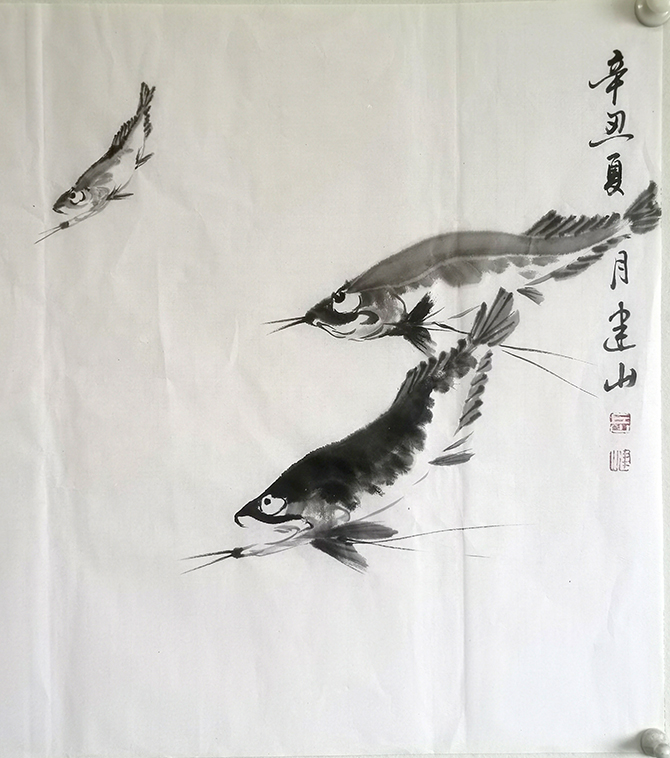 辛丑夏月建山